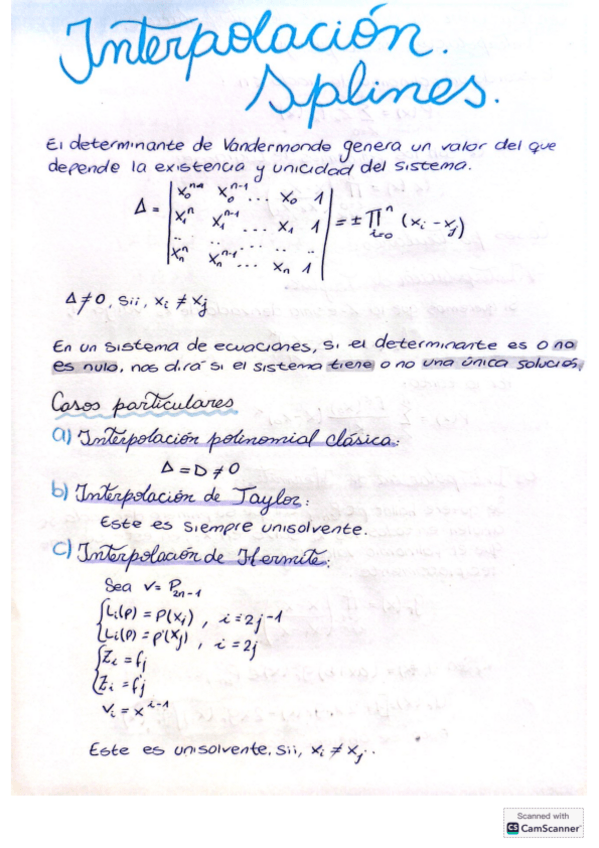 Interpolación.
Splines.
El determinante de Vandermonde genera un valor del que
depende la existencia y unicidad del sistema.
Δ = | x₀ⁿ x₀ⁿ⁻¹ ... x₀ 1 |
| x₁ⁿ x₁ⁿ⁻¹ ... x₁ 1 | = ± ∏ⁿᵢ₌₀ (xᵢ - xⱼ)
| .. .. ... .. .. |
| xₙⁿ xₙⁿ⁻¹ ... xₙ 1 |
Δ ≠ 0, sii, xᵢ ≠ xⱼ
En un sistema de ecuaciones, si el determinante es o no
es nulo, nos dirá si el sistema tiene o no una única solución,
Casos particulares
a) Interpolación polinomial clásica:
Δ = D ≠ 0
b) Interpolación de Taylor:
Este es siempre unisolvente.
c) Interpolación de Hermite:
Sea V = P₂ₙ₋₁
{ Lᵢ(p) = P(xⱼ) , i = 2j-1
{ Lᵢ(p) = p'(xⱼ) , i = 2j
{ Zᵢ = fⱼ
{ Zᵢ = f'ⱼ
Vᵢ = x ⁱ⁻¹
Este es unisolvente, sii, xᵢ ≠ xⱼ..
Scanned with
CS CamScanner